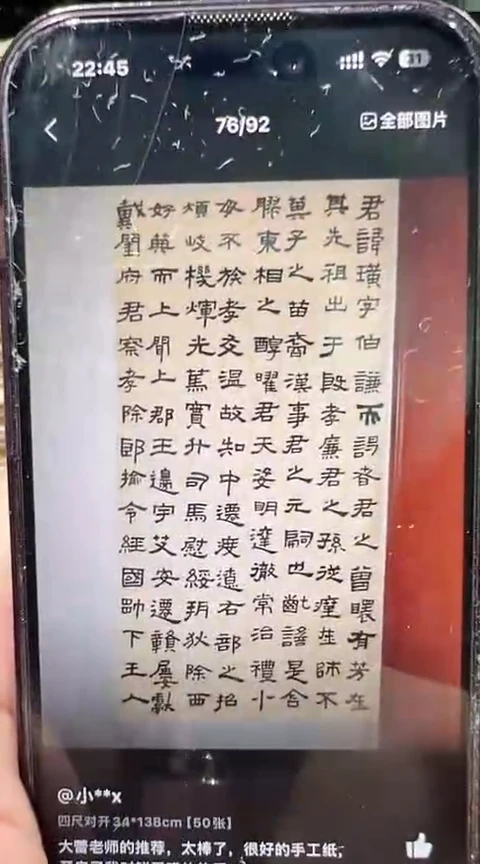 22:45
31
76/92
全部图片
君諱璜字伯謙而誤咨君之曾有芳在
其先祖出于殷孝廉君之孫從生師不
子之苗裔漢事君之元嗣也齔謠是含
勝東相之醇曜君天姿明達徹常治禮小
不族孝友温故知中遷度遼右部之招
煩岐機煇光篤實升司馬慰綏朔狄除西
好典而上聞上郡王邊字艾安遷贛屢獻
府君察孝除郎榆令經國帥下王人
@小**x
四尺对开34*138cm【50张】
大蕾老师的推荐，太棒了，很好的手工纸，